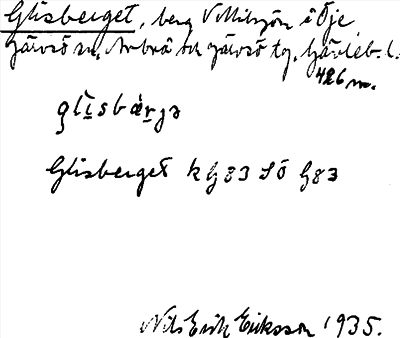 Glisberget, berg V Mellansjön i Öje,
Järvsö sn, Arbrå och Järvsö tg, Gävleb. l.
426 m.
glìsbær̥jə
Glisberget k G83 SÖ G83
Nils Erik Eriksson 1935.